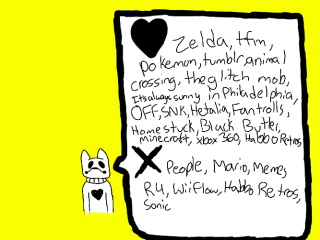 Zelda, tfm,
Pokemon, tumblr, animal
crossing, the glitch mob,
Its always sunny in Philadelphia,
OFF, SNK, Hetalia, Fantrolls,
Homestuck, Black Butler,
minecraft, xbox 360, Habbo Retros
People, Mario, Memes,
R4, Wii Flow, Habbo Retros,
Sonic